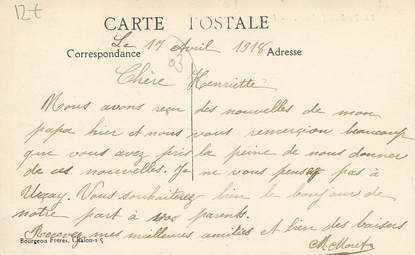 12€
CARTE POSTALE
Correspondance
Adresse
Le 17 Avril 1918
Chère Henriette
Nous avons reçu des nouvelles de mon
papa hier et nous vous remercion beaucoup
que vous avez pris la peine de nous donner
de ces nouvelles. Je ne vous pensez pas à
Vous souhaiterez bien le bonjour de
notre part à vos parents.
Recevez mes meilleures amitiés et bien des baisers
M. Moret
Bourgeois Frères, Chalon-s-S